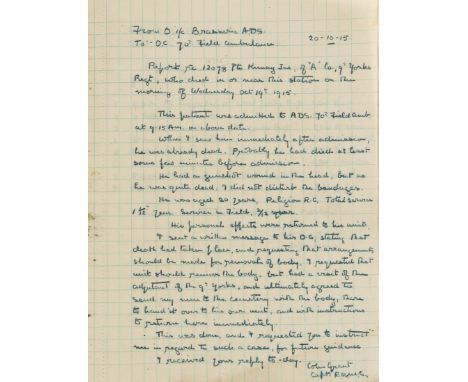 From O i/c Brasserie A.D.S.
To O.C. 70th Field Ambulance
20-10-15
Report re 12073 Pte Kenway Jas, of "A" Co, 9th Yorks
Regt, who died in or near this station on the
morning of Wednesday Oct 19th 1915.
This patient was admitted to A.D.S. 70th Field Amb
at 9.15 A.M. on above date.
When I saw him immediately after admission,
he was already dead. Probably he had died at least
some few minutes before admission.
He had a gunshot wound in the head, but as
he was quite dead, I did not disturb the bandages.
He was aged 20 years, Religion R.C, Total Service
1 1/12 year. Service in Field, 2/12 year.
His personal effects were returned to his unit.
I sent a written message to his O.C, stating that
death had taken place, and requesting that arrangements
should be made for removal of body. I requested that
unit should remove the body, but had a visit of the
adjutant of the 9th Yorks, and ultimately agreed to
send my men to the cemetery with the body, there
to hand it over to his own unit, and with instructions
to return here immediately.
This was done, and I requested you to instruct
me in regard to such a case, for future guidance
I received your reply to-day.
Colin Grant
Capt R.A.M.C.